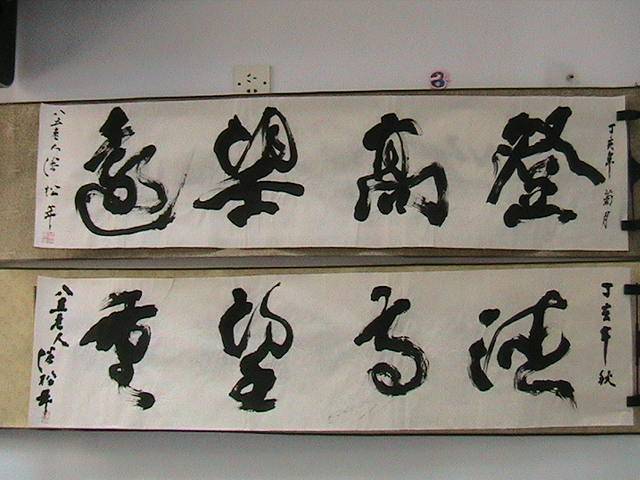 丁亥年菊月
登高望遠
八五老人松年
丁亥年秋
德高望重
八五老人松年